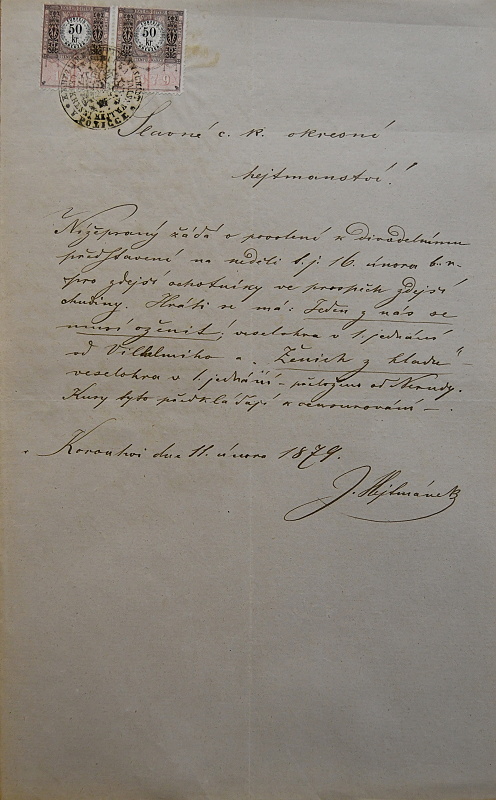 50 kr. 50 kr.
Slavné c. k. okresní
hejtmanství!
Nížepsaný žádá o povolení k divadelnímu
představení na neděli t. j. 16. února b. r.
pro zdejší ochotníky ve prospěch zdejší
chudiny. Hráti se má: Jeden z nás se
musí oženit, veselohra v 1. jednání
od Vilhelmiho a „Ženich z hladu“
veselohra v 1. jednání – přeložena od Nerudy.
Kusy tyto předkládají k censurování –.
dne 11. února 1879.
J. Hejtmánek